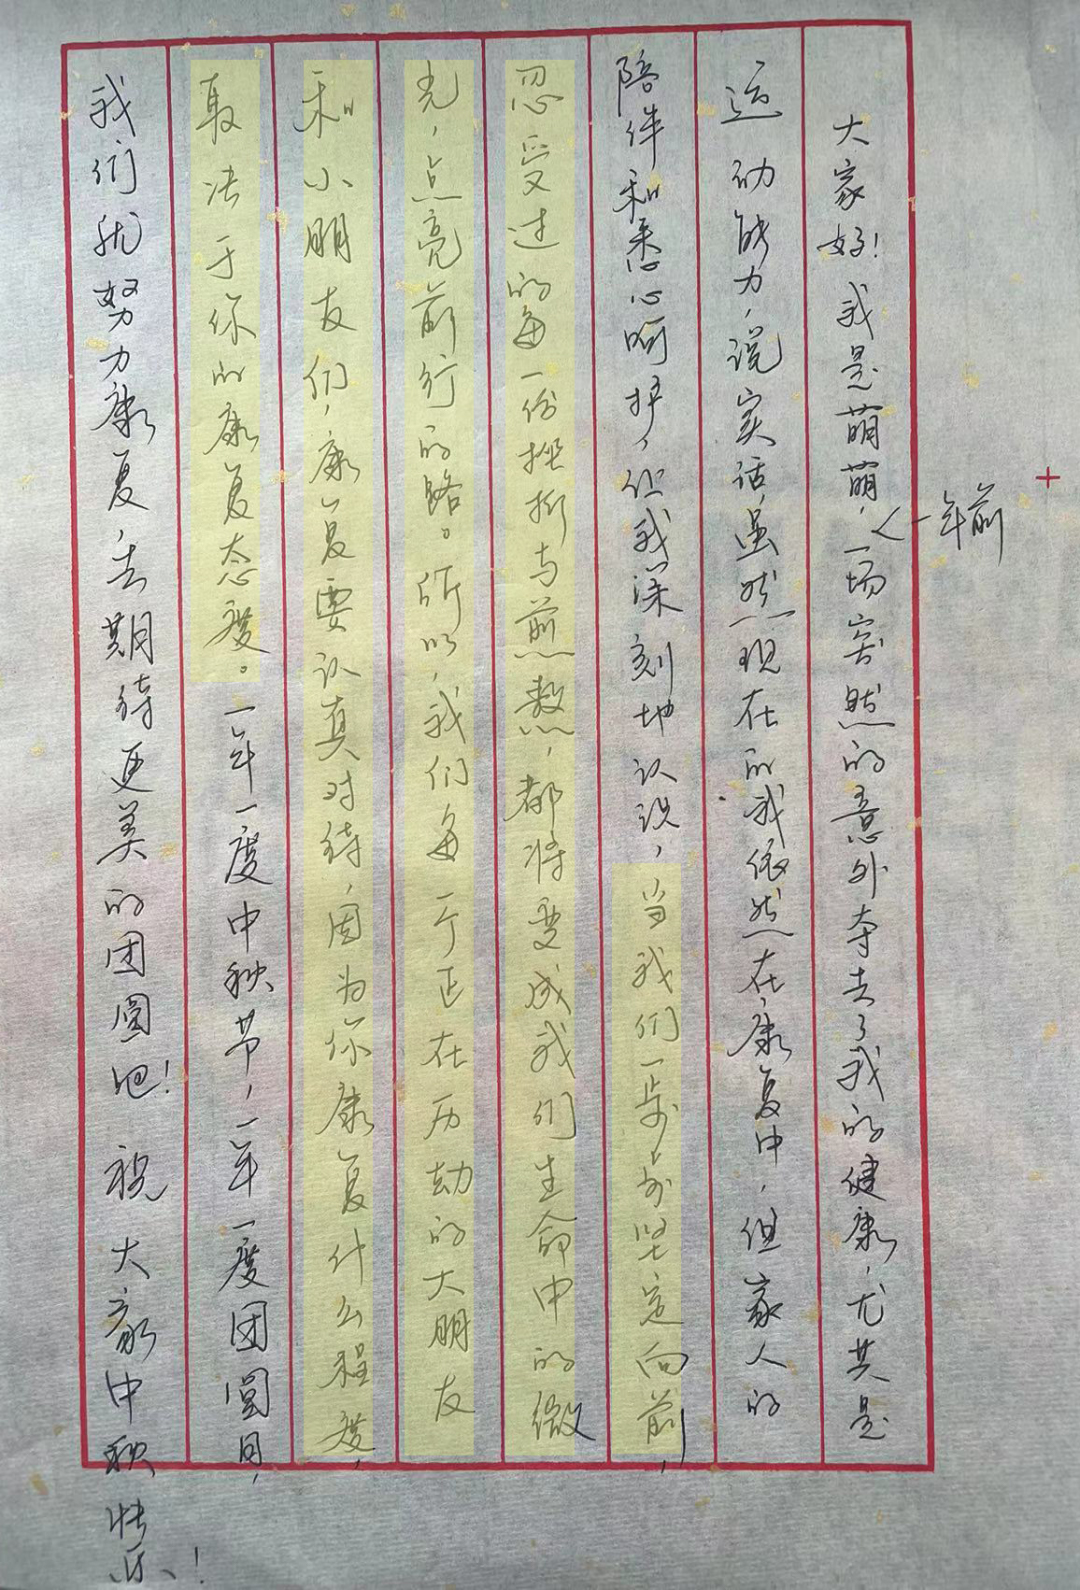 大家好！我是萌萌，一场突然的意外夺去了我的健康，尤其是
一年前
运动能力，说实话，虽然现在的我依然在康复中，但家人的
陪伴和悉心呵护，但我深刻地认识，当我们一步步坚定向前，
忍受过的每一份挫折与煎熬，都将变成我们生命中的微
光，点亮前行的路。所以，我们每一个正在历劫的大朋友
和小朋友们，康复要认真对待，因为你康复什么程度，
取决于你的康复态度。一年一度中秋节，一年一度团圆日，
我们就努力康复，去期待更美的团圆吧！祝大家中秋快乐！